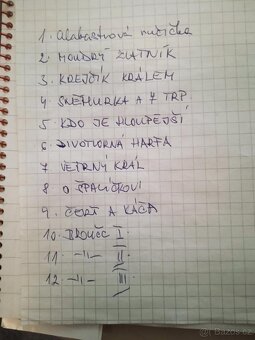 1. Alabastrová ručička
2 MOUDRÝ ZLATNÍK
3. KREJČÍK KRÁLEM
4 SNĚHURKA A 7 TRP.
5 KDO JE HLOUPĚJŠÍ
6. DIVOTVORNÁ HARFA
7 VĚTRNÝ KRÁL
8 O ŠPALÍČKOVI
9. ČERT A KÁČA
10. BROUČC I.
11 -"- II
12. -"- III